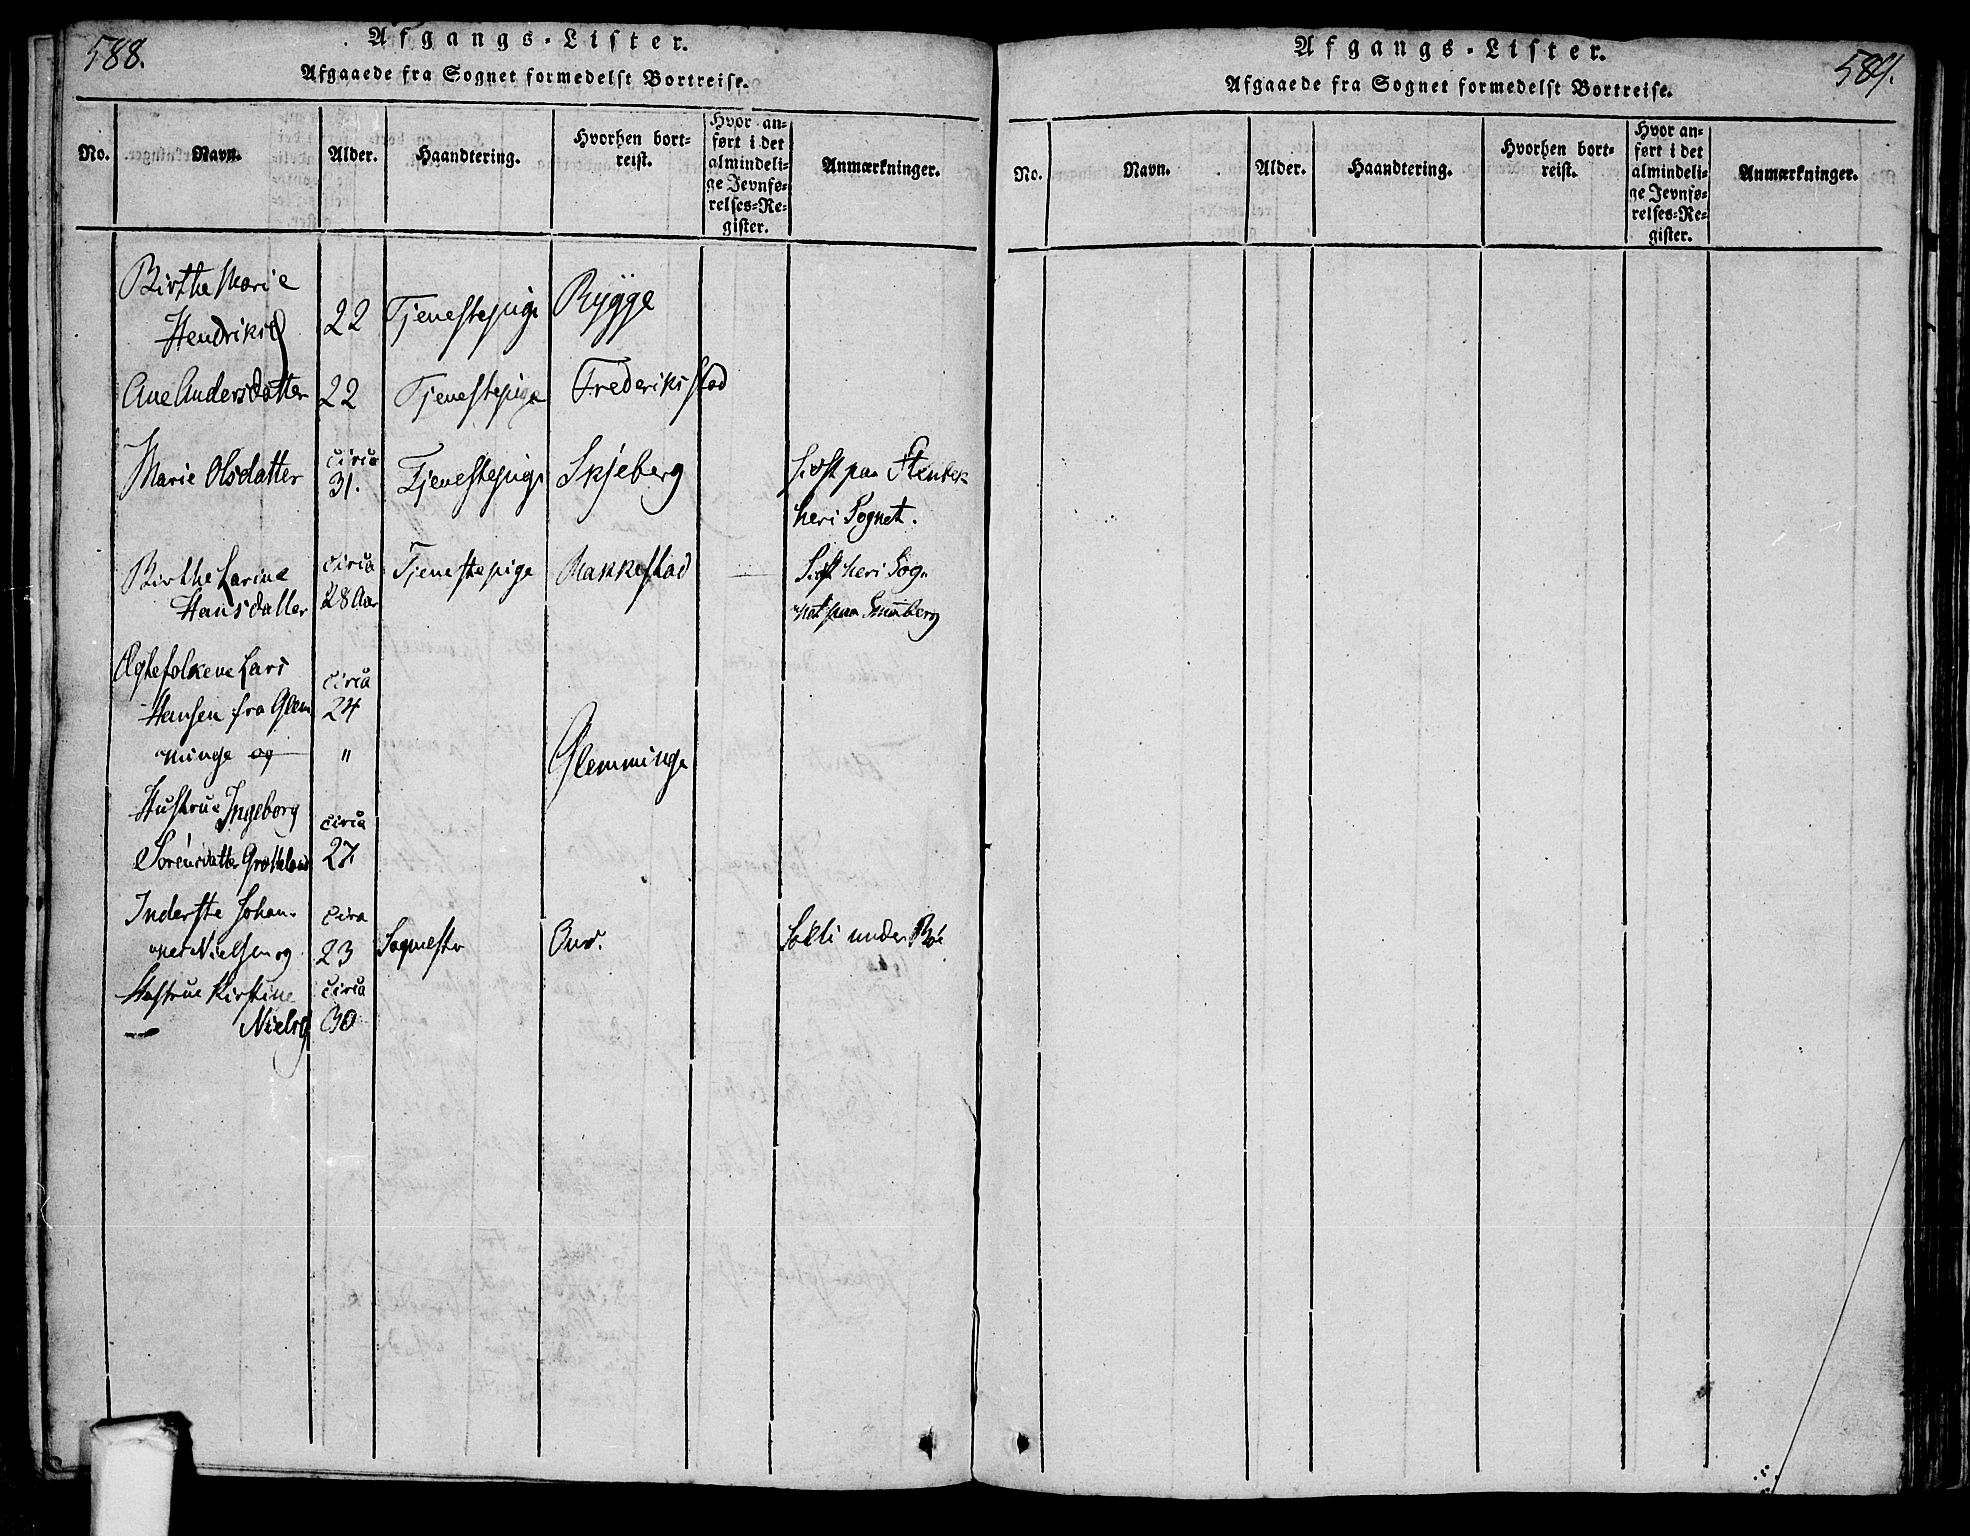 588.
Afgangs-Lister.
Afgaaede fra Sognet formedelst Bortreise.
No.
Navn.
Alder.
Haandtering.
Hvorhen bort-
reist.
Hvor an-
ført i det
almindeli-
ge Jevnfø-
relses-Re-
gister.
Anmærkninger.
Birthe Marie
Hendriksd
22
Tjenestepige
Rygge
Ane Andersdatter
22
Tjenestepige
Frederikstad
Marie Olsdatter
circa
31.
Tjenestepige
Skjeberg
sidst paa
heri Sognet.
Birthe Karine
Hansdatter
circa
28 Aar
Tjenestepige
Rakkestad
Sidst heri Sog-
net paa
Ægtefolkene Lars
Hansen fra Glem
minge og
circa
24
"
Glemminge
Hustrue Ingeborg
Sörensdatter
circa
27
Inderste Johan-
nes Nielsen og
circa
23
Onsö.
under Böe
Hustrue Kirstine
Nielsd
circa
30
589.
Afgangs-Lister.
Afgaaede fra Sognet formedelst Bortreise.
No.
Navn.
Alder.
Haandtering.
Hvorhen bort-
reist.
Hvor an-
ført i det
almindeli-
ge Jevnfø-
relses-Re-
gister.
Anmærkninger.